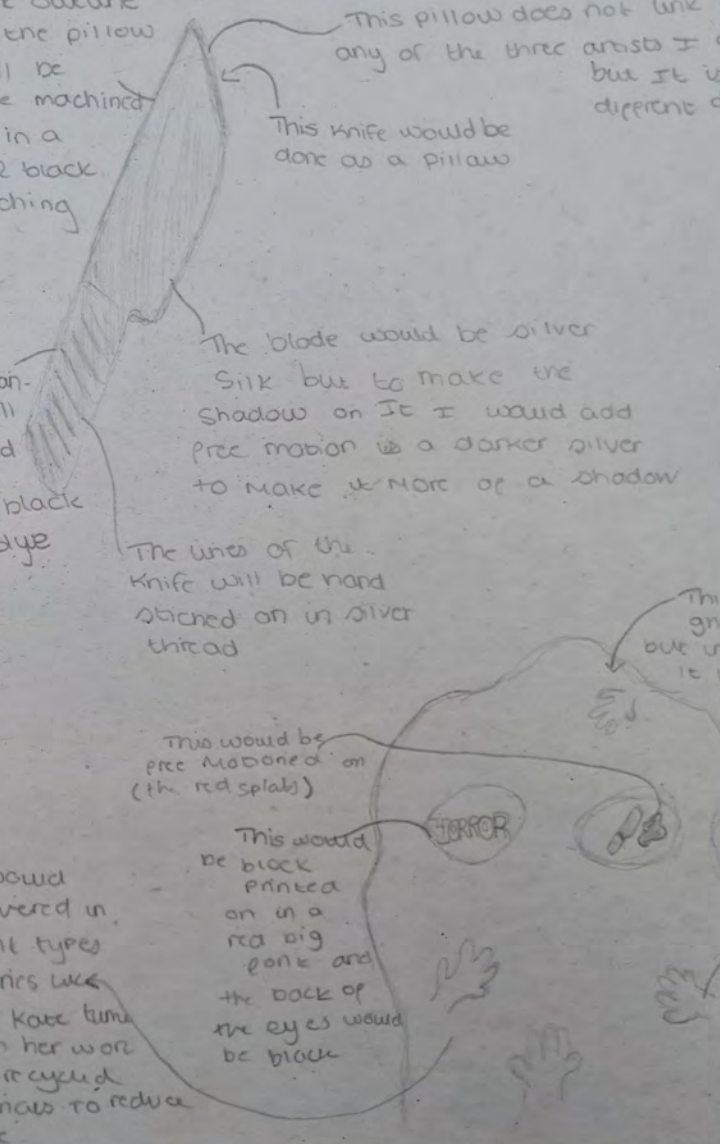 the pillow
be
machined
in a
2 black
ching
This pillow does not link
any of the three artists I
but It is
different
This Knife would be
done as a pillow
The blade would be silver
Silk but to make the
Shadow on It I would add
free motion is a darker silver
to make it More of a shadow
black
dye
The lines of the
Knife will be hand
stiched on in silver
thread
but
it
This would be
free Motioned on
(the red splats)
HORROR
This would
be block
printed
on in a
red big
font and
the back of
the eyes would
be black
would
vered in
nt types
rics like
Kate tume
her wor
recycled
rics to reduce